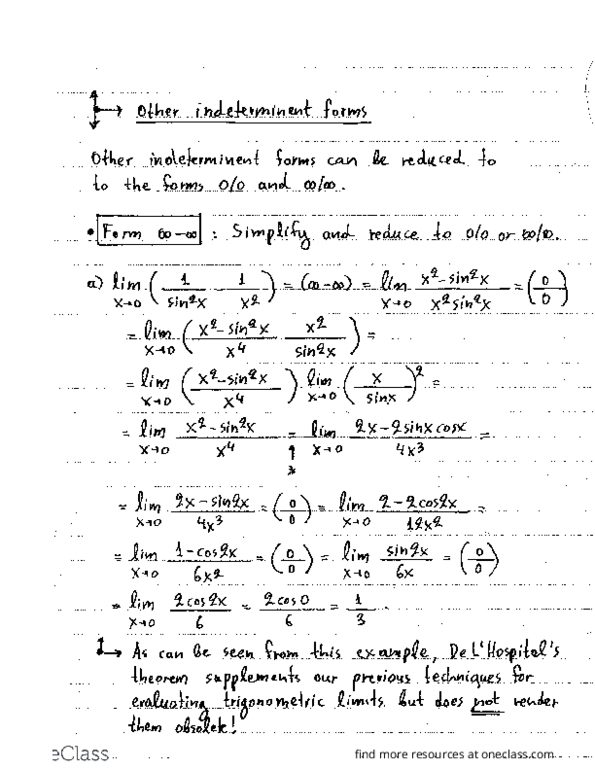 Other indeterminent forms
Other indeterminent forms can be reduced to
to the forms 0/0 and ∞/∞.
• Form ∞-∞ : Simplify and reduce to 0/0 or ∞/∞.
a) lim x→0 (1/sin²x - 1/x²) = (∞-∞) = lim x→0 (x²-sin²x)/(x² sin²x) = (0/0)
= lim x→0 ((x²-sin²x)/x⁴ · x²/sin²x) =
= lim x→0 ((x²-sin²x)/x⁴) · lim x→0 (x/sinx)² =
= lim x→0 (x²-sin²x)/x⁴ = lim x→0 (2x-2sinx cosx)/4x³ =
*
= lim x→0 (2x-sin2x)/4x³ = (0/0) = lim x→0 (2-2cos2x)/12x² =
= lim x→0 (1-cos2x)/6x² = (0/0) = lim x→0 sin2x/6x = (0/0)
= lim x→0 2cos2x/6 = 2cos0/6 = 1/3
As can be seen from this example, De L'Hospital's
theorem supplements our previous techniques for
evaluating trigonometric limits but does not render
them obsolete!
eClass
find more resources at oneclass.com